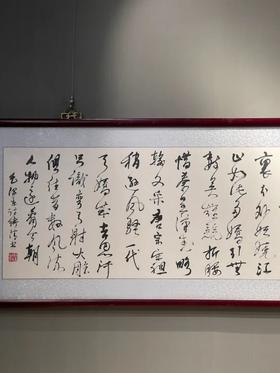 裹分外妖嬈江
山如此多嬌引無
數英雄競折腰
惜秦皇漢武略
輸文采唐宗宋祖
稍遜風騷一代
天驕成吉思汗
只識彎弓射大雕
俱往矣數風流
人物還看今朝
毛澤東